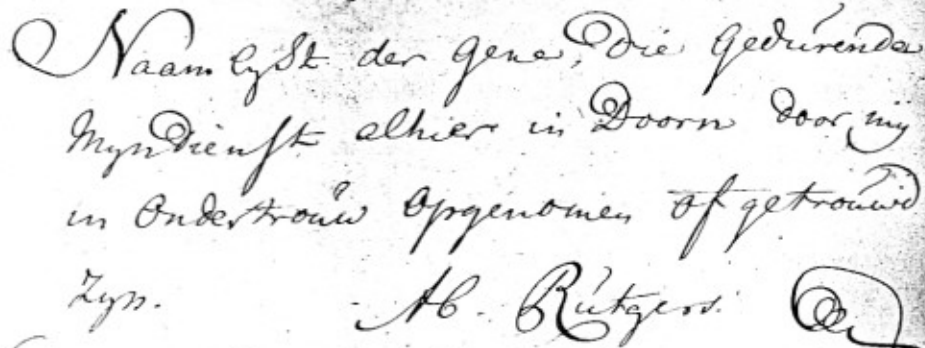 Naam lyst der gene, die gedúrende
Myn dienst alhier in Doorn door my
in ondertroúw opgenomen of getroúwd
zyn. Ab. Rútgers.